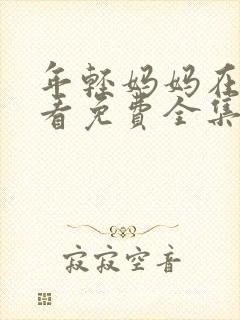 年轻妈妈在
看免费全集
寂寂空音